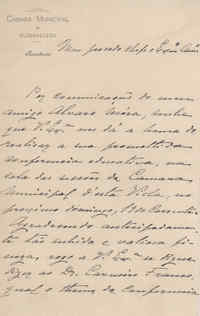 CAMARA MUNICIPAL
DE
Meu presado chefe e Exmo Amo
Por communicação do nosso
amigo Alvaro , soube
que V. Exa nos dá a honra de
realisar a sua promettida
conferencia educativa, na
sala das sessões da Camara
Municipal d'esta Villa, no
proximo domingo, 13 do corrente.
Agradecendo antecipadamente
tão subida e valiosa fi-
neza, rogo a V. Exa se digne
dizer ao Dr. Carneiro Franco,
qual o thema da conferencia